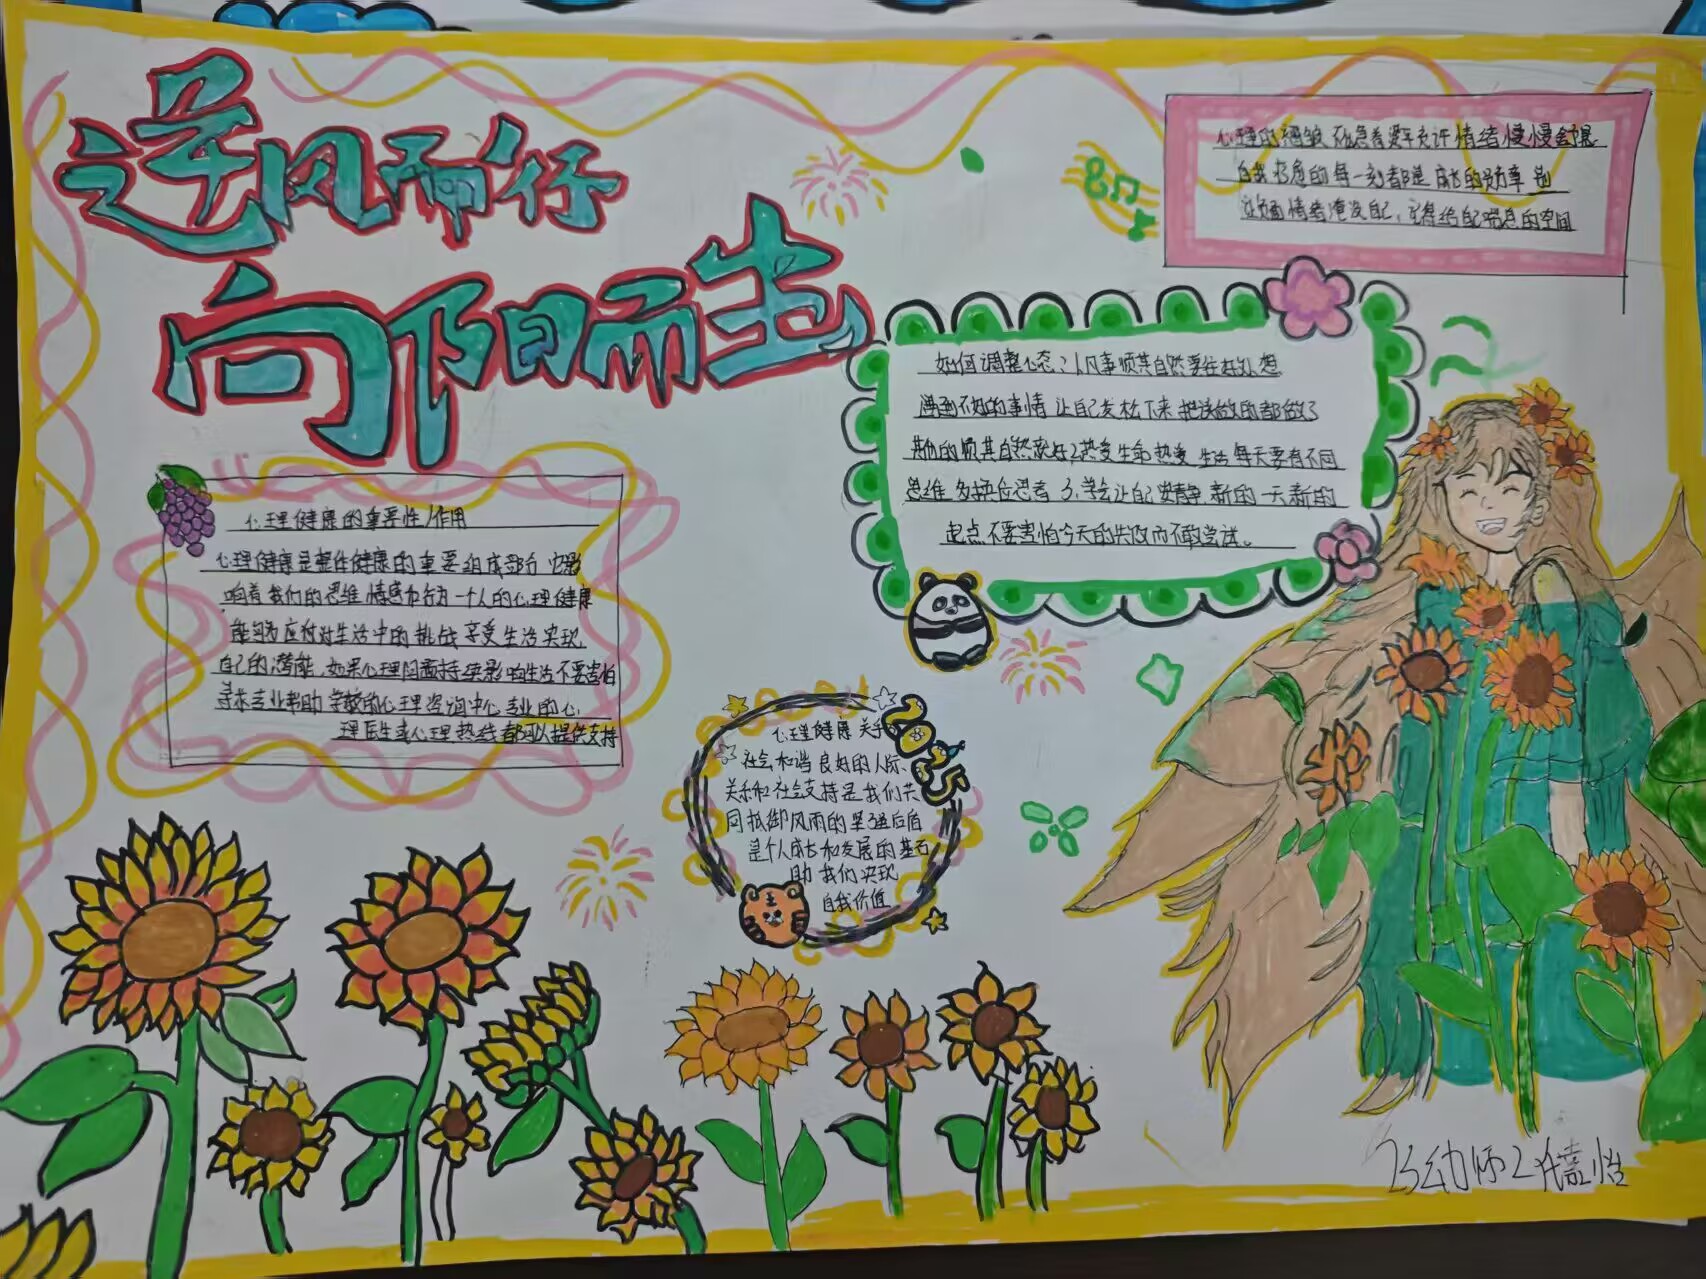 逆风而行
向阳而生
心理的
允许情绪慢慢会
自我 的每一刻都是成长的
情绪淹没自己，记得给自己喘息的空间
如何调整心态：1.凡事顺其自然要往好处想
遇到不好的事情 让自己放松下来 把该做的都做了
其他的顺其自然就好2.热爱生命 热爱生活 每天要有不同
思维 多换位思考 3.学会让自己安静 新的一天新的
起点 不要害怕今天的失败而不敢尝试。
心理健康的重要性/作用
心理健康是整体健康的重要组成部分 它影
响着我们的思维 情感和行为 一个人的心理健康
能够 应对生活中的挑战 享受生活 实现
自己的潜能，如果心理问题持续影响生活不要害怕
寻求专业帮助 学校的心理咨询中心 专业的心
理医生或心理热线都可以提供支持
2025
心理健康 关乎
社会和谐 良好的人际
关系和社会支持是我们共
同抵御风雨的坚强后盾
是个人成长和发展的基石
助我们实现
自我价值
23幼师2 嘉怡